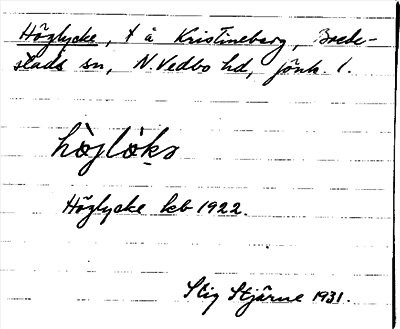 Höglycke, t å Kristineberg, Brede-
stads sn, N. Vedbo hd, Jönk. l.
hög̀lǫ̀kə
Höglycke kb 1922.
Stig Stjärne 1931.